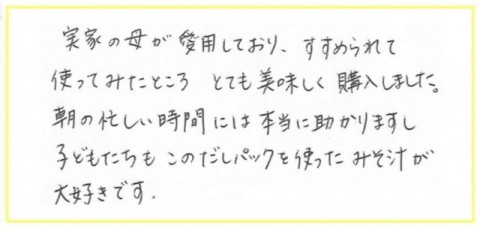 実家の母が愛用しており、すすめられて
使ってみたところ とても美味しく購入しました。
朝の忙しい時間には本当に助かりますし
子どもたちも このだしパックを使った みそ汁が
大好きです.